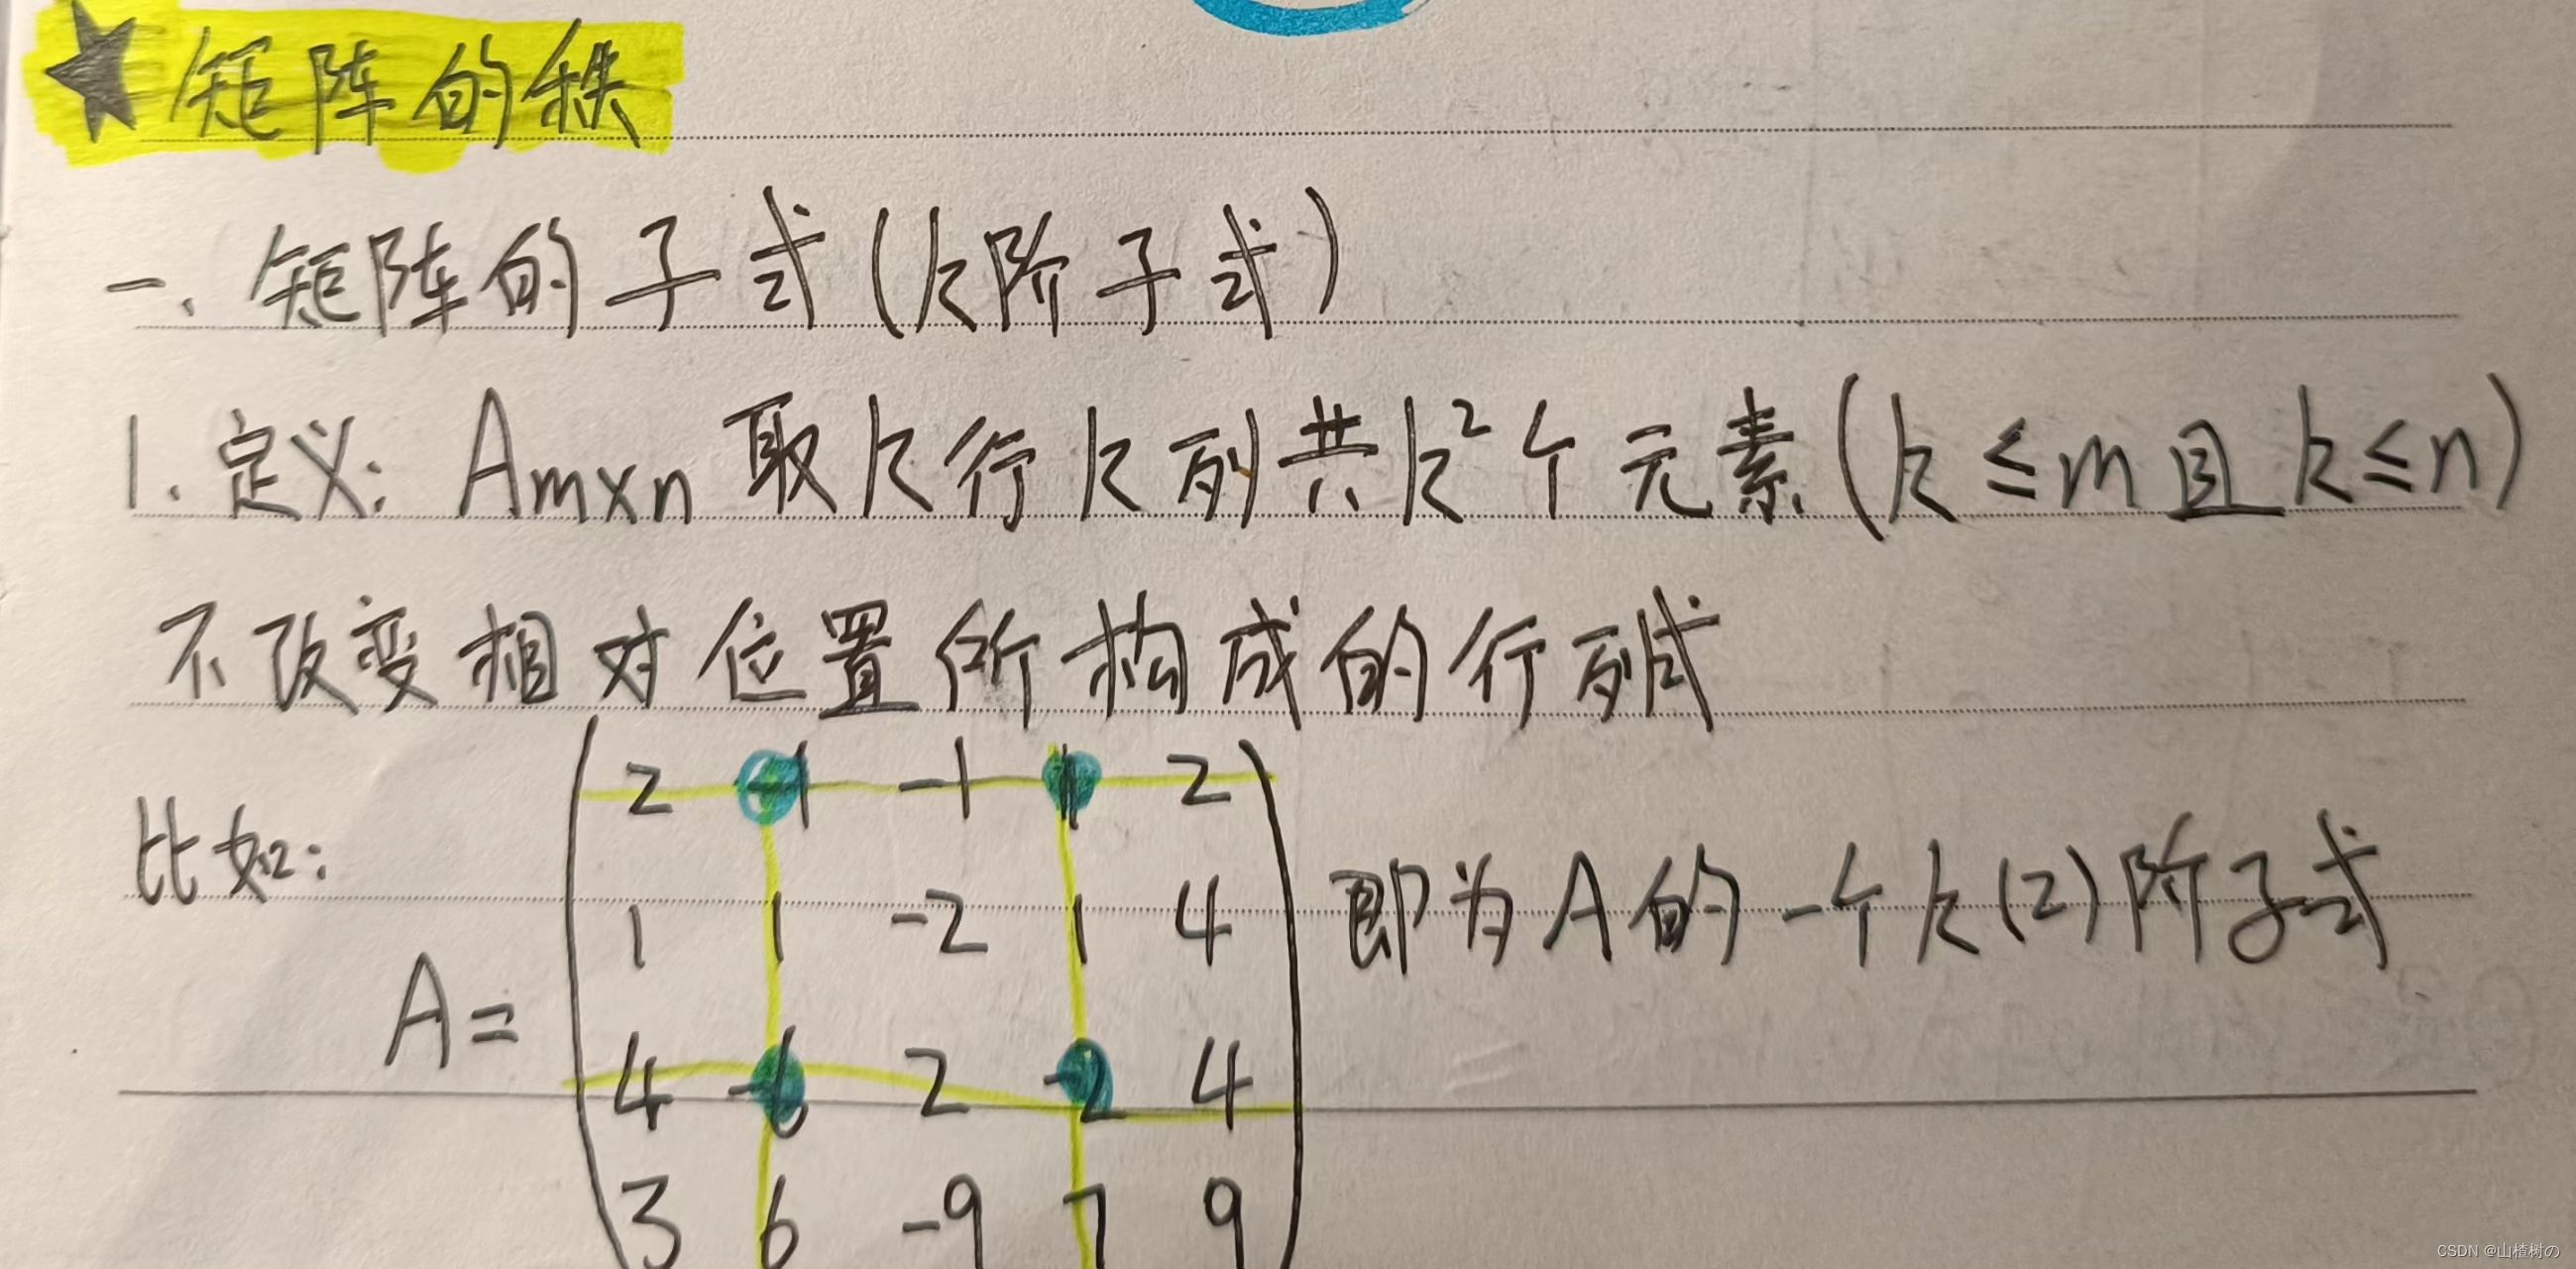 ★矩阵的秩
一、矩阵的子式(k阶子式)
1. 定义: Am×n 取k行k列共k²个元素(k≤m且k≤n)
不改变相对位置所构成的行列式
比如:
A=
2 -1 -1 1 2
1 1 -2 1 4
4 -6 2 -2 4
3 6 -9 7 9
即为A的一个k(2)阶子式
CSDN @山楂树の